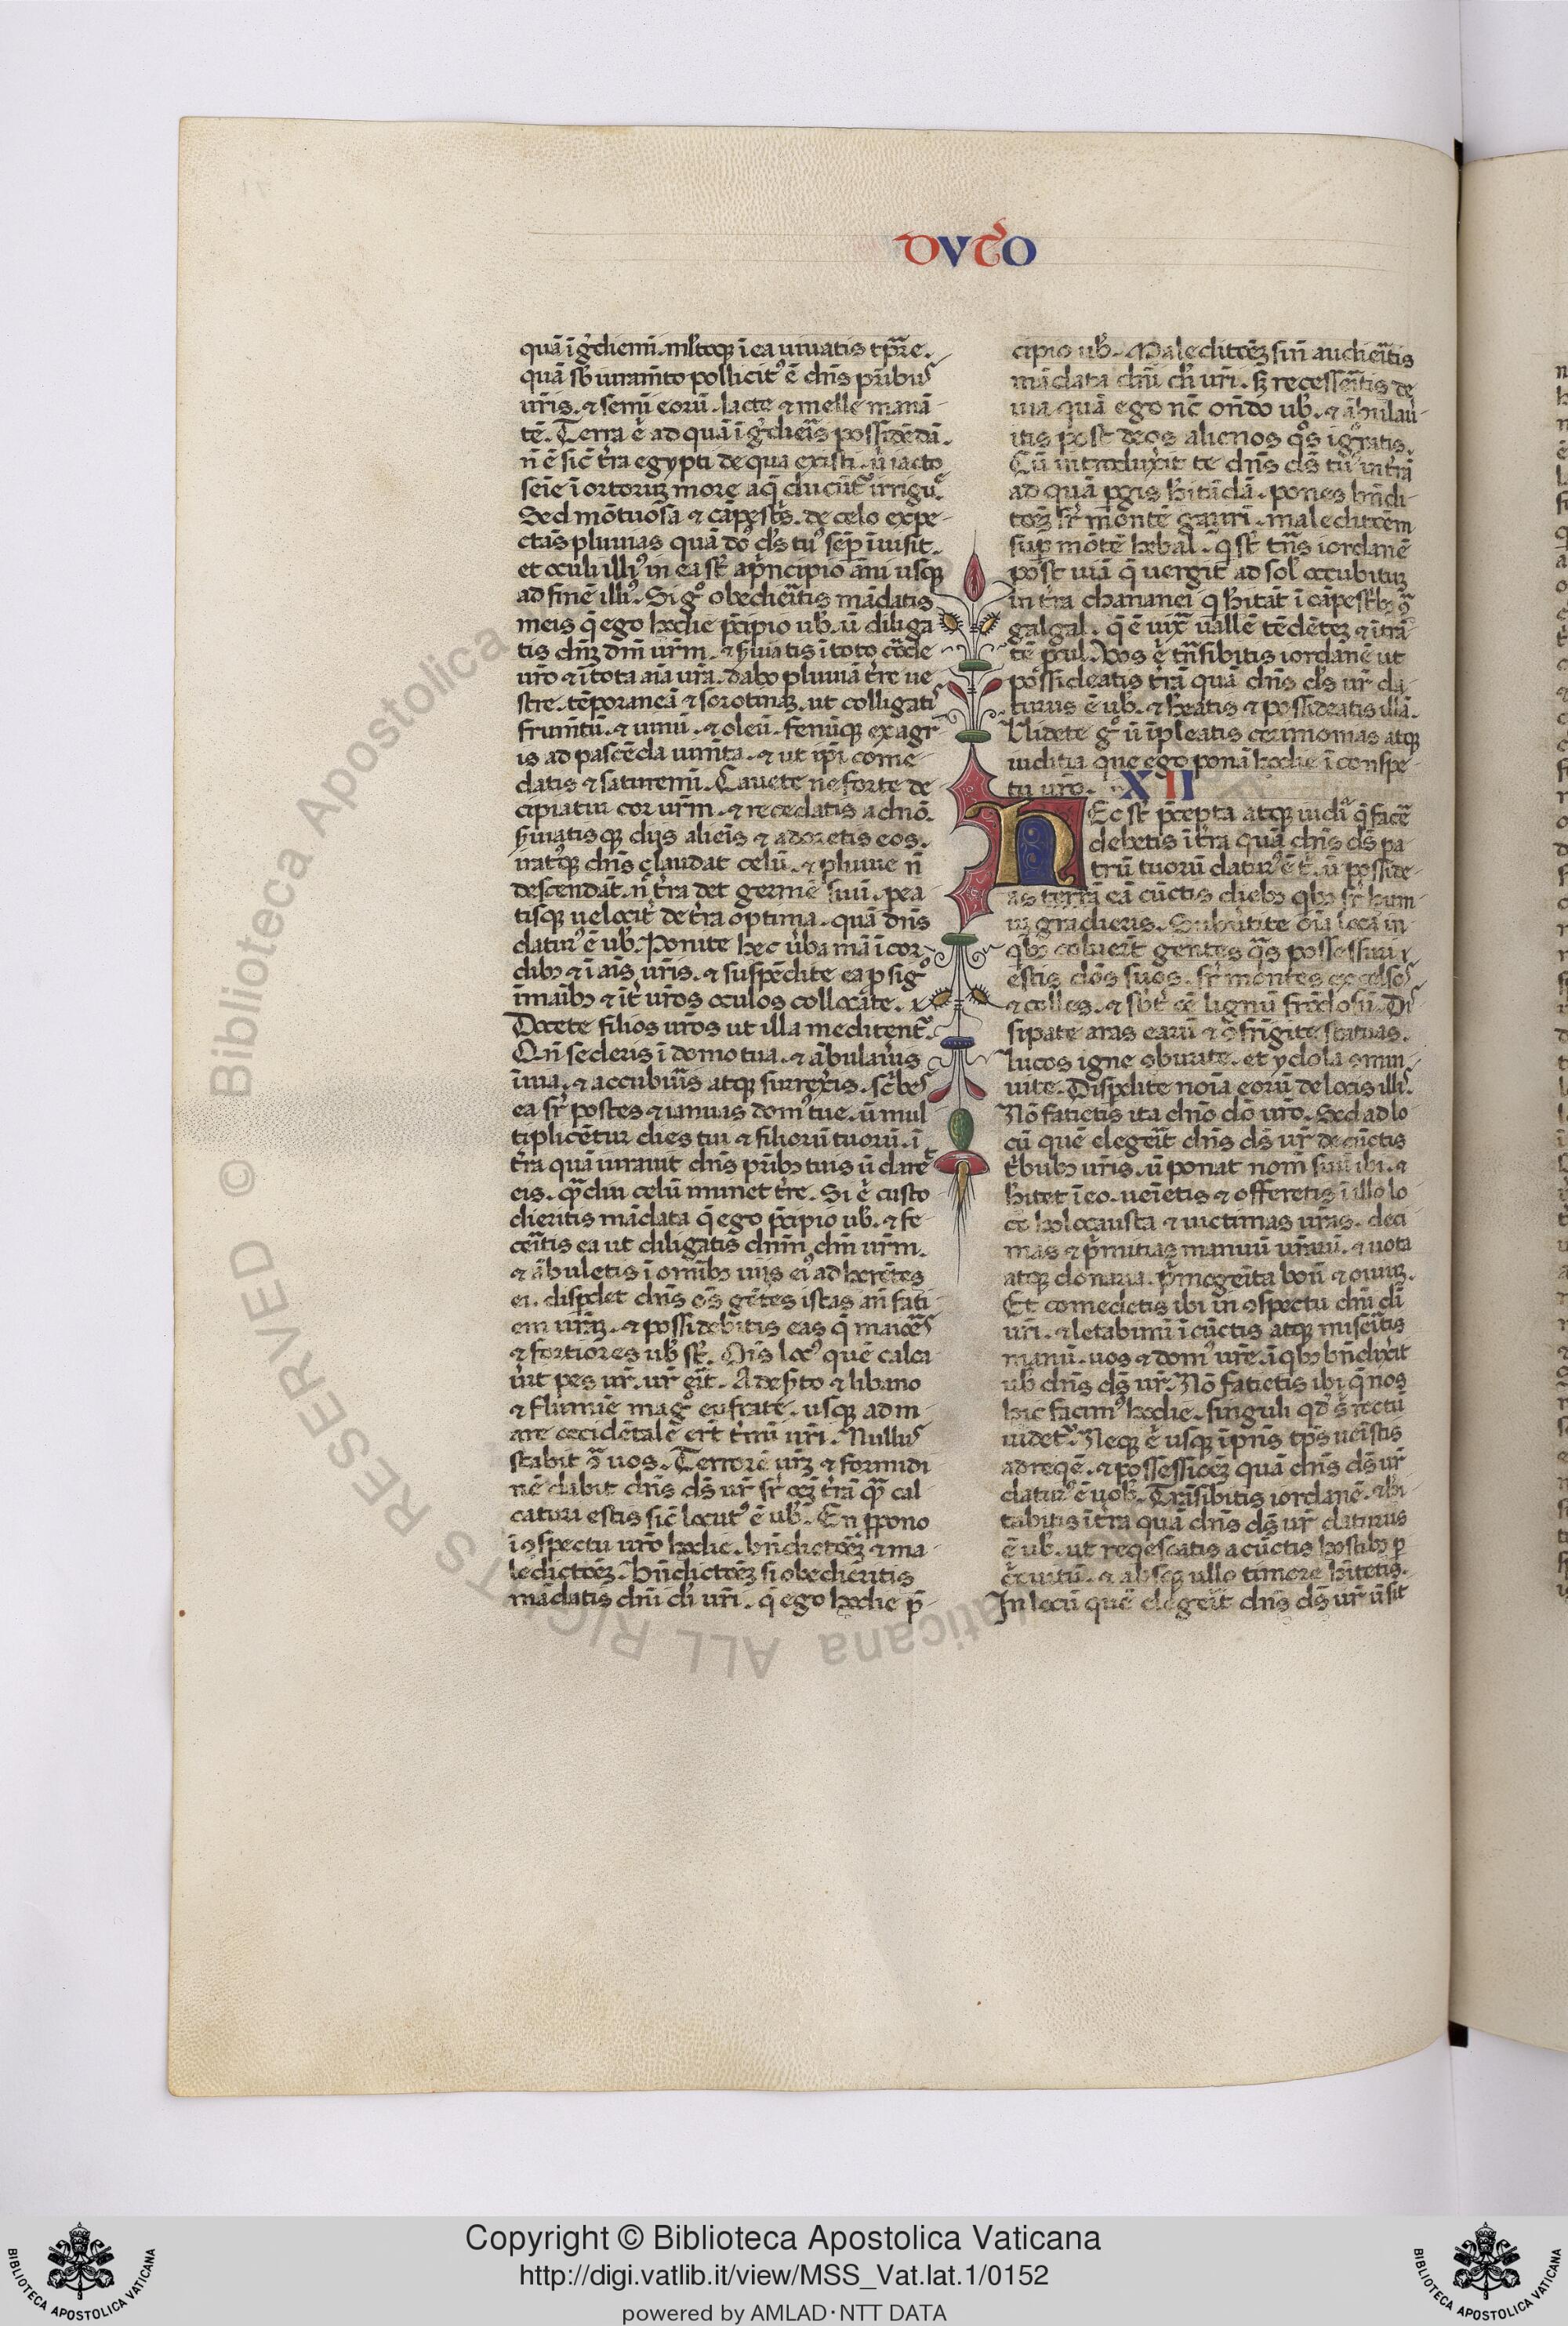 DVTO
quā ī g̃diemī. ml̃toq ī ea uiuatis tp̄re.
quā sb̄ iuram̄to pollicit᾽ ē dn̄s pr̄ibu᾽
ur̄is. ⁊ semī eorū. lacte ⁊ melle manā-
tē. Terra ē ad quā ī g̃diēis possidēdā.
n̄ ē sic̄ t̄ra egypti de qua existi. ū iacto
seīe ī ortorum more aq̄ ducūt᾽ irrigu᾽.
Sed mōtuosā ⁊ cāpest̄s. de celo expe-
ctās pluuias quā dō ds̄ tu᾽ semp̄ īuisit.
et oculi illi᾽ in ea st̄ a p̄ncipio āni usq
ad finē illi᾽. Si g᾽ obedieītis mādatis
meis q̄ ego hodie p̄cipio ub̄. ū diliga
tis dn̄m dm̄ ur̄m. ⁊ s̄uiatis ī toto corde
uro ⁊ ī tota aīa ur̄a. dabo pluuiā t̄re ue
stre. tēporaneā ⁊ serotinā. ut colligati᾽
frum̄tū. ⁊ uinū. ⁊ oleū. fenūq ex agr
is ad pascēda ium̄ta. ⁊ ut ip̄i come-
datis ⁊ saturemī. Cauete ne forte de
cipiatur cor ur̄m. ⁊ recedatis a dn̄o.
s̄uiatisq dijs alieīs ⁊ adoretis eos.
irat᾽q dn̄s claudat celū. ⁊ pluuie n̄
descendāt. n̄ t̄ra det germē suū. pea-
tisq uelocit̄ de t̄ra optima. quā dn̄s
datur᾽ ē ub̄. Ponite hec ūba mā ī cor-
dib᾽ ⁊ ī aīs ur̄is. ⁊ suspēdite ea p sig᾽
ī manib᾽ ⁊ īt̄ ur̄os oculos collocate.
Docete filios ur̄os ut illa meditent᾽.
Qn̄ sederis ī domo tua. ⁊ ābulau̅is
ī uia. ⁊ accubu̅is atq surrex̄is. sc̄bes
ea sr̄ postes ⁊ ianuas dom᾽ tue. ū mul
tiplicētur dies tui ⁊ filiorū tuorū. ī
t̄ra quā iurauit dn̄s pr̄ib᾽ tuis ū daret
eis. q̄diu celū īminet t̄re. Si ē custo
dieritis mādata q̄ ego p̄cipio ub̄. ⁊ fe-
ceītis ea ut diligatis dn̄m dm̄ ur̄m.
⁊ ābuletis ī omīb᾽ uiis ei᾽ adherētes
ei. dispdet dn̄s oēs gētes istas an̄ fati-
em ur̄am. ⁊ possidebitis eas q̄ maiores
⁊ fortiores ub̄ st̄. Oīs loc᾽ quē calca
ūit pes ur̄. ur̄ erit. A des̄to ⁊ libano
⁊ flumīe mag᾽ eufrate. usq ad m-
are occidētalē ert̄ t̄mī ur̄i. Nullus
stabit ɔ̄ uos. Terrorē ur̄m ⁊ formidi
nē dabit dn̄s ds̄ ur̄ sr̄ oēm t̄rā q̄ cal-
caturi estis sic̄ locut᾽ ē ub̄. En p̄pono
ī ɔspectu uro hodie. bn̄dictoēm ⁊ ma-
ledictoēm. Bn̄dictoēm si obedieritis
mādatis dn̄i di ur̄i. q̄ ego hodie p̄-
cipio ub̄. Maledictoēm sin̄ audieītis
mādata dn̄i di ur̄i. s recesseītis de
uia quā ego nc̄ on̄do ub̄. ⁊ ābulau-
itis post deos alienos q᾽s igratis.
Cū introduxit te dn̄s ds̄ tu᾽ in t̄rā
ad quā p̄gis hitādā. pones bn̄di-
toēm sr̄ mōntē garizi. maledictoēm
sup mōtē hebal. q̄ st̄ trn̄s iordanē
post uiā q̄ uergit ad sol᾽ occubitum
in t̄ra chananei q hitat ī cāpestb᾽ ɔ̄
galgal. q̄ ē iuxta uallē tēdētem ⁊ ītrā
tē pcul. Vos ē trn̄sibitis iordanē ut
possideatis t̄rā quā dn̄s ds̄ ur̄ da-
turus ē ub̄. ⁊ heatis ⁊ possideatis illā.
Uidete g᾽ ū īpleatis cerimonias atq
iuditia que ego ponā hodie ī conspe-
tu uro. XII
HEc st̄ p̄cepta atq iudi᾽ q̄ facē
debetis ī t̄ra quā dn̄s ds̄ pa-
trū tuorū datur᾽ ē t᾽. ū posside-
as terrā eā cūctis dieb᾽ qb᾽ sr̄ hum-
um gradieris. Subūtite oīa loca in-
qb᾽ coluert̄ gentes q̄s possessuri
estis deos suos. sr̄ montes excelsos
⁊ colles. ⁊ sbt̄ oē lignū frōdosū. Di
sipate aras earū ⁊ ɔfrīgite statuas.
lucos igne oburite. et ydola ɔmin-
uite. Dispdite noīa eorū de locis illi᾽.
Nō fatietis ita dn̄o dō uro. Sed ad lo
cū quē elegeīt dn̄s ds̄ ur̄ de cūctis
t̄bub᾽ ur̄is. ū ponat nom̄ suū ibi. ⁊
hitet ī eo. ueīetis ⁊ offeretis ī illo lo
co holocausta ⁊ uictimas ur̄as. deci
mas ⁊ p̄mitias manuū ur̄arū. ⁊ uota
atq donaria. p̄mogeīta boū ⁊ ouium.
Et comedetis ibi in ɔspectu dn̄i di
ur̄i. ⁊ letabimī ī cūctis atq miseītis
manū. uos ⁊ dom᾽ ur̄e. ī qb᾽ bn̄dixit
ub̄ dn̄s ds̄ ur̄. Nō fatietis ibi q̄ nos
hic facim᾽ hodie. singuli qd᾽ s᾽ rectū
uidet᾽. Neq ē usq ī pn̄s tp̄s ueīstis
ad reqē. ⁊ possessioēm quā dn̄s ds̄ ur̄
datur᾽ ē uob̄. Trāsibitis iordanē. ⁊ hi-
tabitis ī t̄ra quā dn̄s ds̄ ur̄ daturus
ē ub̄. ut reqescatis a cūctis hostib᾽ p
c̄cuitū. ⁊ absq ullo timore hitetis.
In locū quē elegeīt dn̄s ds̄ ur̄ ū sit
© Biblioteca Apostolica Vaticana ALL RIGHTS RESERVED
Copyright © Biblioteca Apostolica Vaticana
http://digi.vatlib.it/view/MSS_Vat.lat.1/0152
powered by AMLAD·NTT DATA
BIBLIOTECA APOSTOLICA VATICANA
BIBLIOTECA APOSTOLICA VATICANA